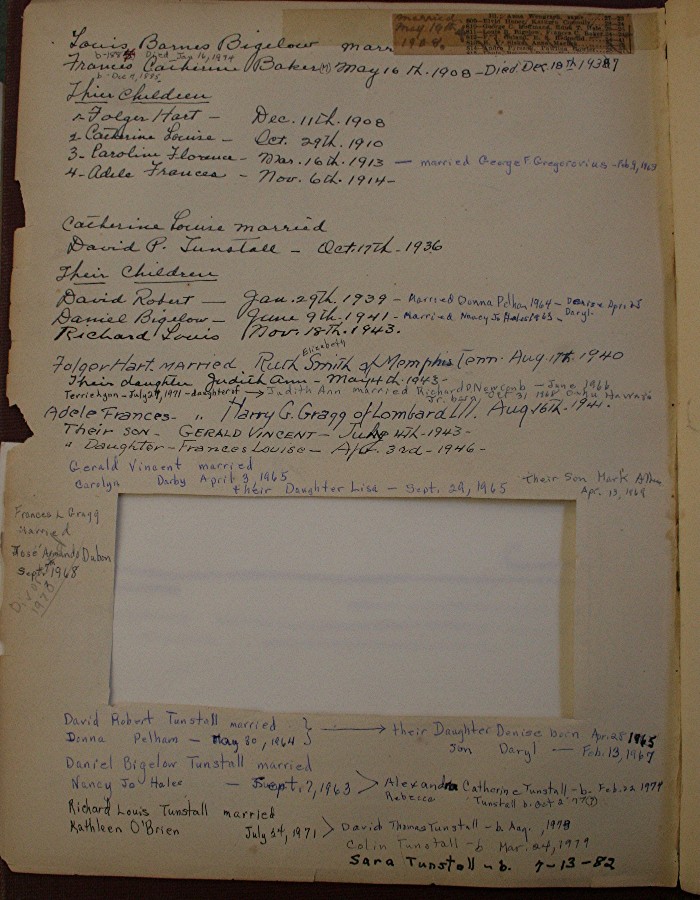 Louis Barnes Bigelow marr
married
May 16th
1908
Died Jan 16, 1974
Frances Catherine Baker May 16th. 1908 - Died Dec. 18th
Thier Children
1- Folger Hart - Dec. 11th. 1908
2- Catherine Louise - Oct. 29th. 1910
3- Caroline Florence - Mar. 16th. 1913 - married George F Gregorovius - Feb 9, 1963
4- Adele Frances - Nov. 6th. 1914 -
Catherine Louise married
David P. Tunstall - Oct. 17th - 1936
Their Children
David Robert - Jan. 29th. 1939 - Married Donna Pelham 1964 - Denise Apr 28
Daniel Bigelow - June 9th. 1941 - Married Nancy Jo Halee 1963 - Daryl
Richard Louis Nov. 18th. 1943.
Folger Hart married Ruth Elizabeth Smith of Memphis Tenn. Aug. 17th. 1940
Their daughter Judith Ann - May 4th. 1943 -
Terri Lynn - July 29, 1971 - daughter of → Judith Ann married Richard D Newcomb - June 1966
Jr. b. Oct 31 1968 Oahu Hawaii
Adele Frances - " Harry G. Gragg of Lombard Ill. Aug 16th. 1941.
Their son - Gerald Vincent - July 4th - 1943 -
" Daughter - Frances Louise - Apr. 3rd - 1946 -
Gerald Vincent married
Carolyn Darby April 3, 1965
their Daughter Lisa - Sept. 29, 1965
Their Son Mark Allen
Apr. 13, 1968
Frances L Gragg
married
José Armando Dubon
Sept. 1968
Divorced
1978
David Robert Tunstall married } → their Daughter Denise born Apr. 28 1965
Donna Pelham - May 30, 1964 } Son Daryl - Feb. 13, 1967
Daniel Bigelow Tunstall married
Nancy Jo Halee - Sept. 7, 1963 > Alexandra Catherine Tunstall - b. Feb. 22 1974
Rebecca Tunstall b. Oct 2 1977
Richard Louis Tunstall married
Kathleen O'Brien July 24, 1971 > David Thomas Tunstall - b. Aug. , 1978
Colin Tunstall - b Mar. 24, 1979
Sara Tunstall - b. 7-13-82